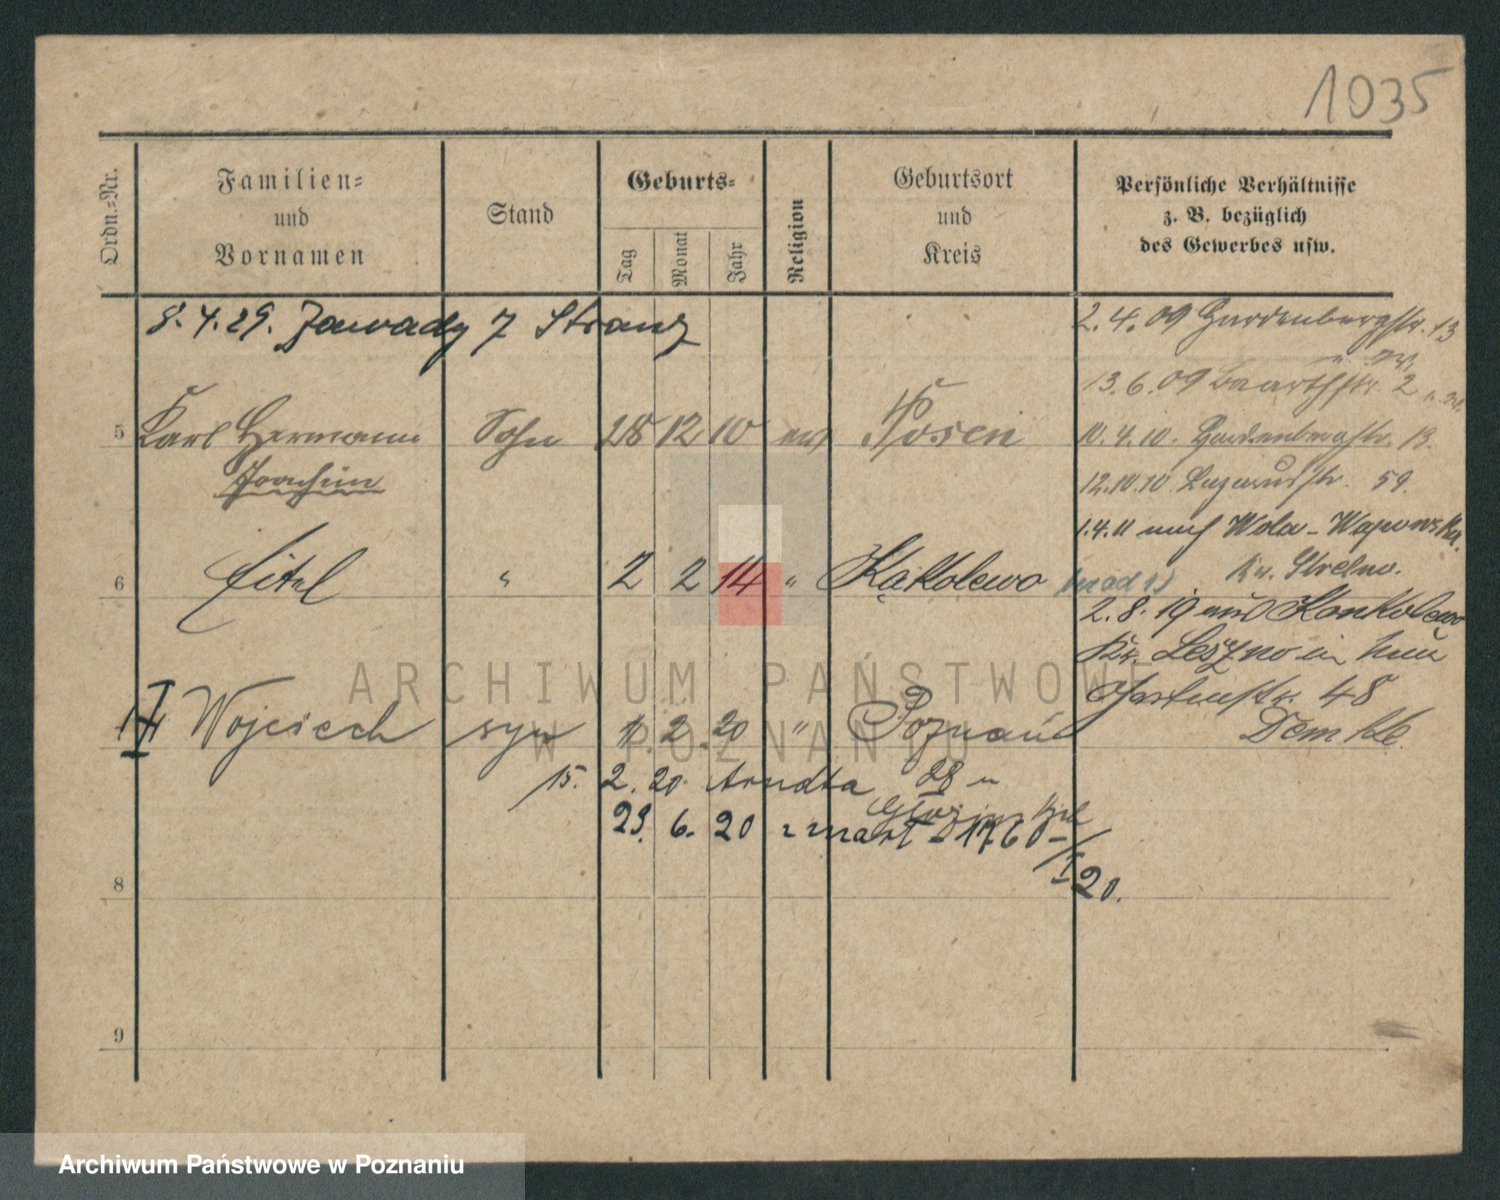 1035
Ordn.-Nr.
Familien-
und
Vornamen
Stand
Geburts-
Tag
Monat
Jahr
Religion
Geburtsort
und
Kreis
Persönliche Verhältnisse
z. B. bezüglich
des Gewerbes usw.
8.4.29. Zawady 7 Stranz
2.4.09 Hardenbergstr. 13
13.6.09 Baarthstr. 2
5 Karl Hermann Sohn 28 12 10 ev Posen
10.4.10. Hardenbergstr. 13.
Joachim
12.10.10 Lazarusstr. 59.
1.4.11 nach Wola-Wapowska.
Kr. Strelno.
6 Eitel " 2 2 14 " Kąkolewo
2.8.19 aus Konkolewo
Kr. Leszno in
Gartenstr. 48
II Wojciech syn 1. 2. 20 " Poznań
15. 2. 20. Arndta 28
23. 6. 20
I 20.
8
9
ARCHIWUM PAŃSTWOWE
W POZNANIU
Archiwum Państwowe w Poznaniu